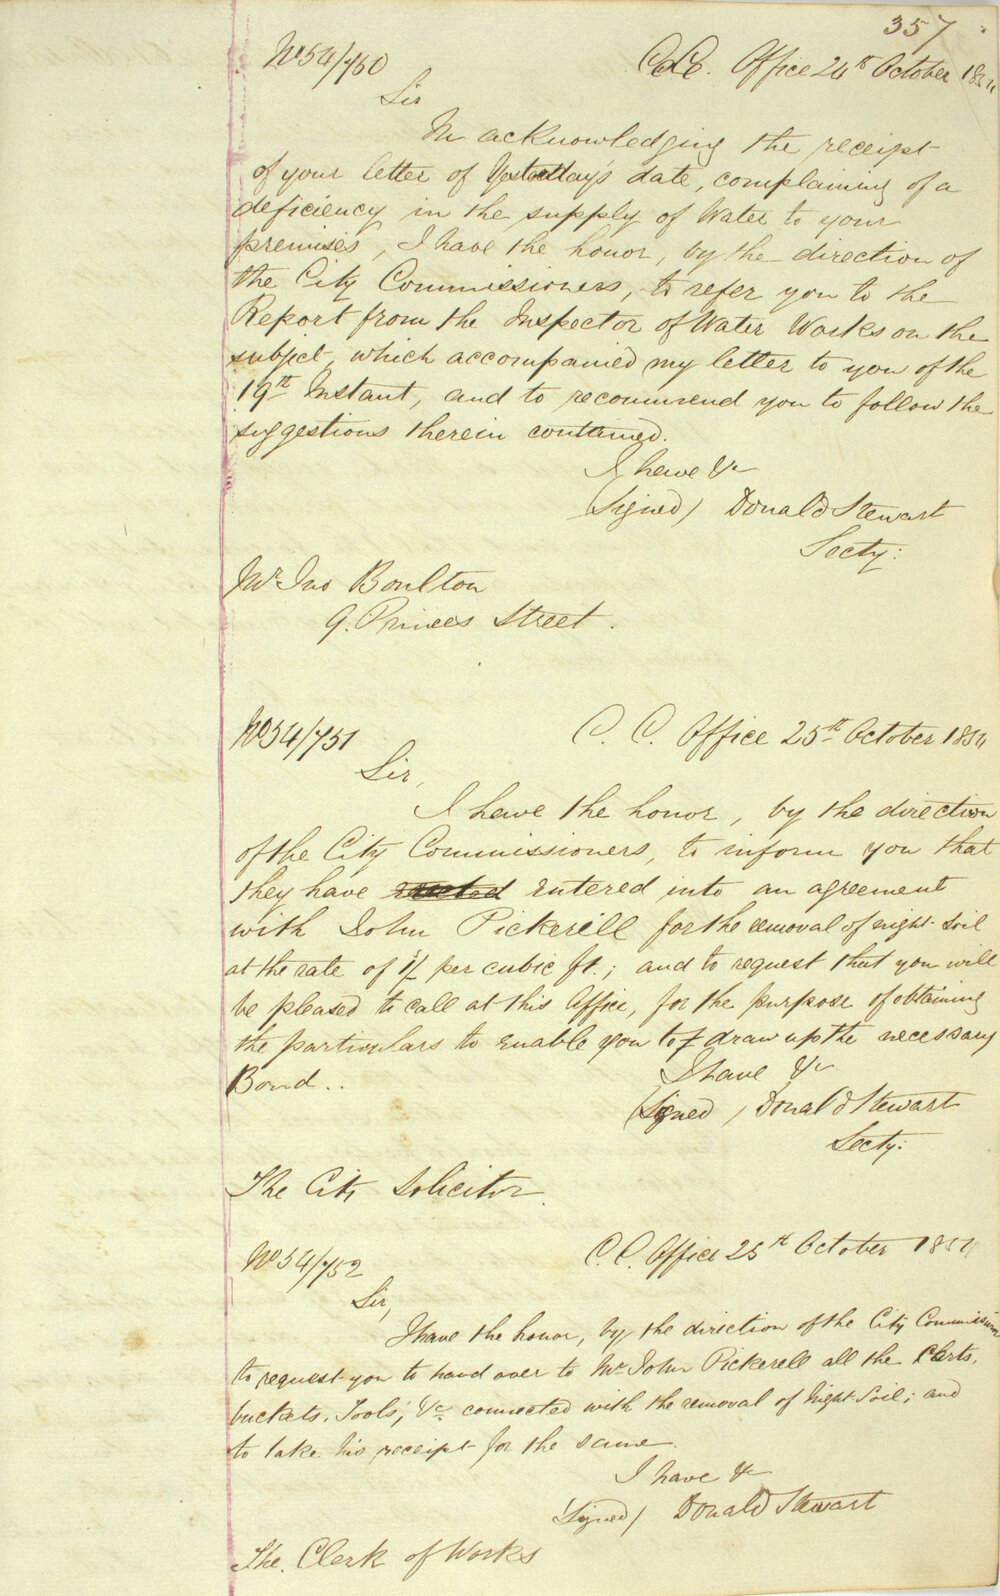 357
No 54/750
C.C. Office 24th October 1854
Sir
In acknowledging the receipt
of your letter of Yesterday's date, complaining of a
deficiency in the supply of Water to your
premises, I have the honor, by the direction of
the City Commissioners, to refer you to the
Report from the Inspector of Water Works on the
subject, which accompanied my letter to you of the
19th Instant, and to recommend you to follow the
suggestions therein contained.
I have &c
(Signed) Donald Stewart
Secty:
Mr Jno Boulton
9. Princes Street.
No 54/751
C. C. Office 25th October 1854
Sir,
I have the honor, by the direction
of the City Commissioners, to inform you that
they have entered into an agreement
with John Pickerell for the removal of night soil
at the rate of 1/ per cubic ft.; and to request that you will
be pleased to call at this Office, for the purpose of obtaining
the particulars to enable you to draw up the necessary
Bond..
I have &c
(Signed) Donald Stewart
Secty:
The City Solicitor
No 54/752
C.C. Office 25th October 1854
Sir,
I have the honor, by the direction of the City Commissioners
to request you to hand over to Mr John Pickerell all the Carts,
buckets, Tools, &c connected with the removal of Night-Soil; and
to take his receipt for the same.
I have &c
(Signed) Donald Stewart
The Clerk of Works